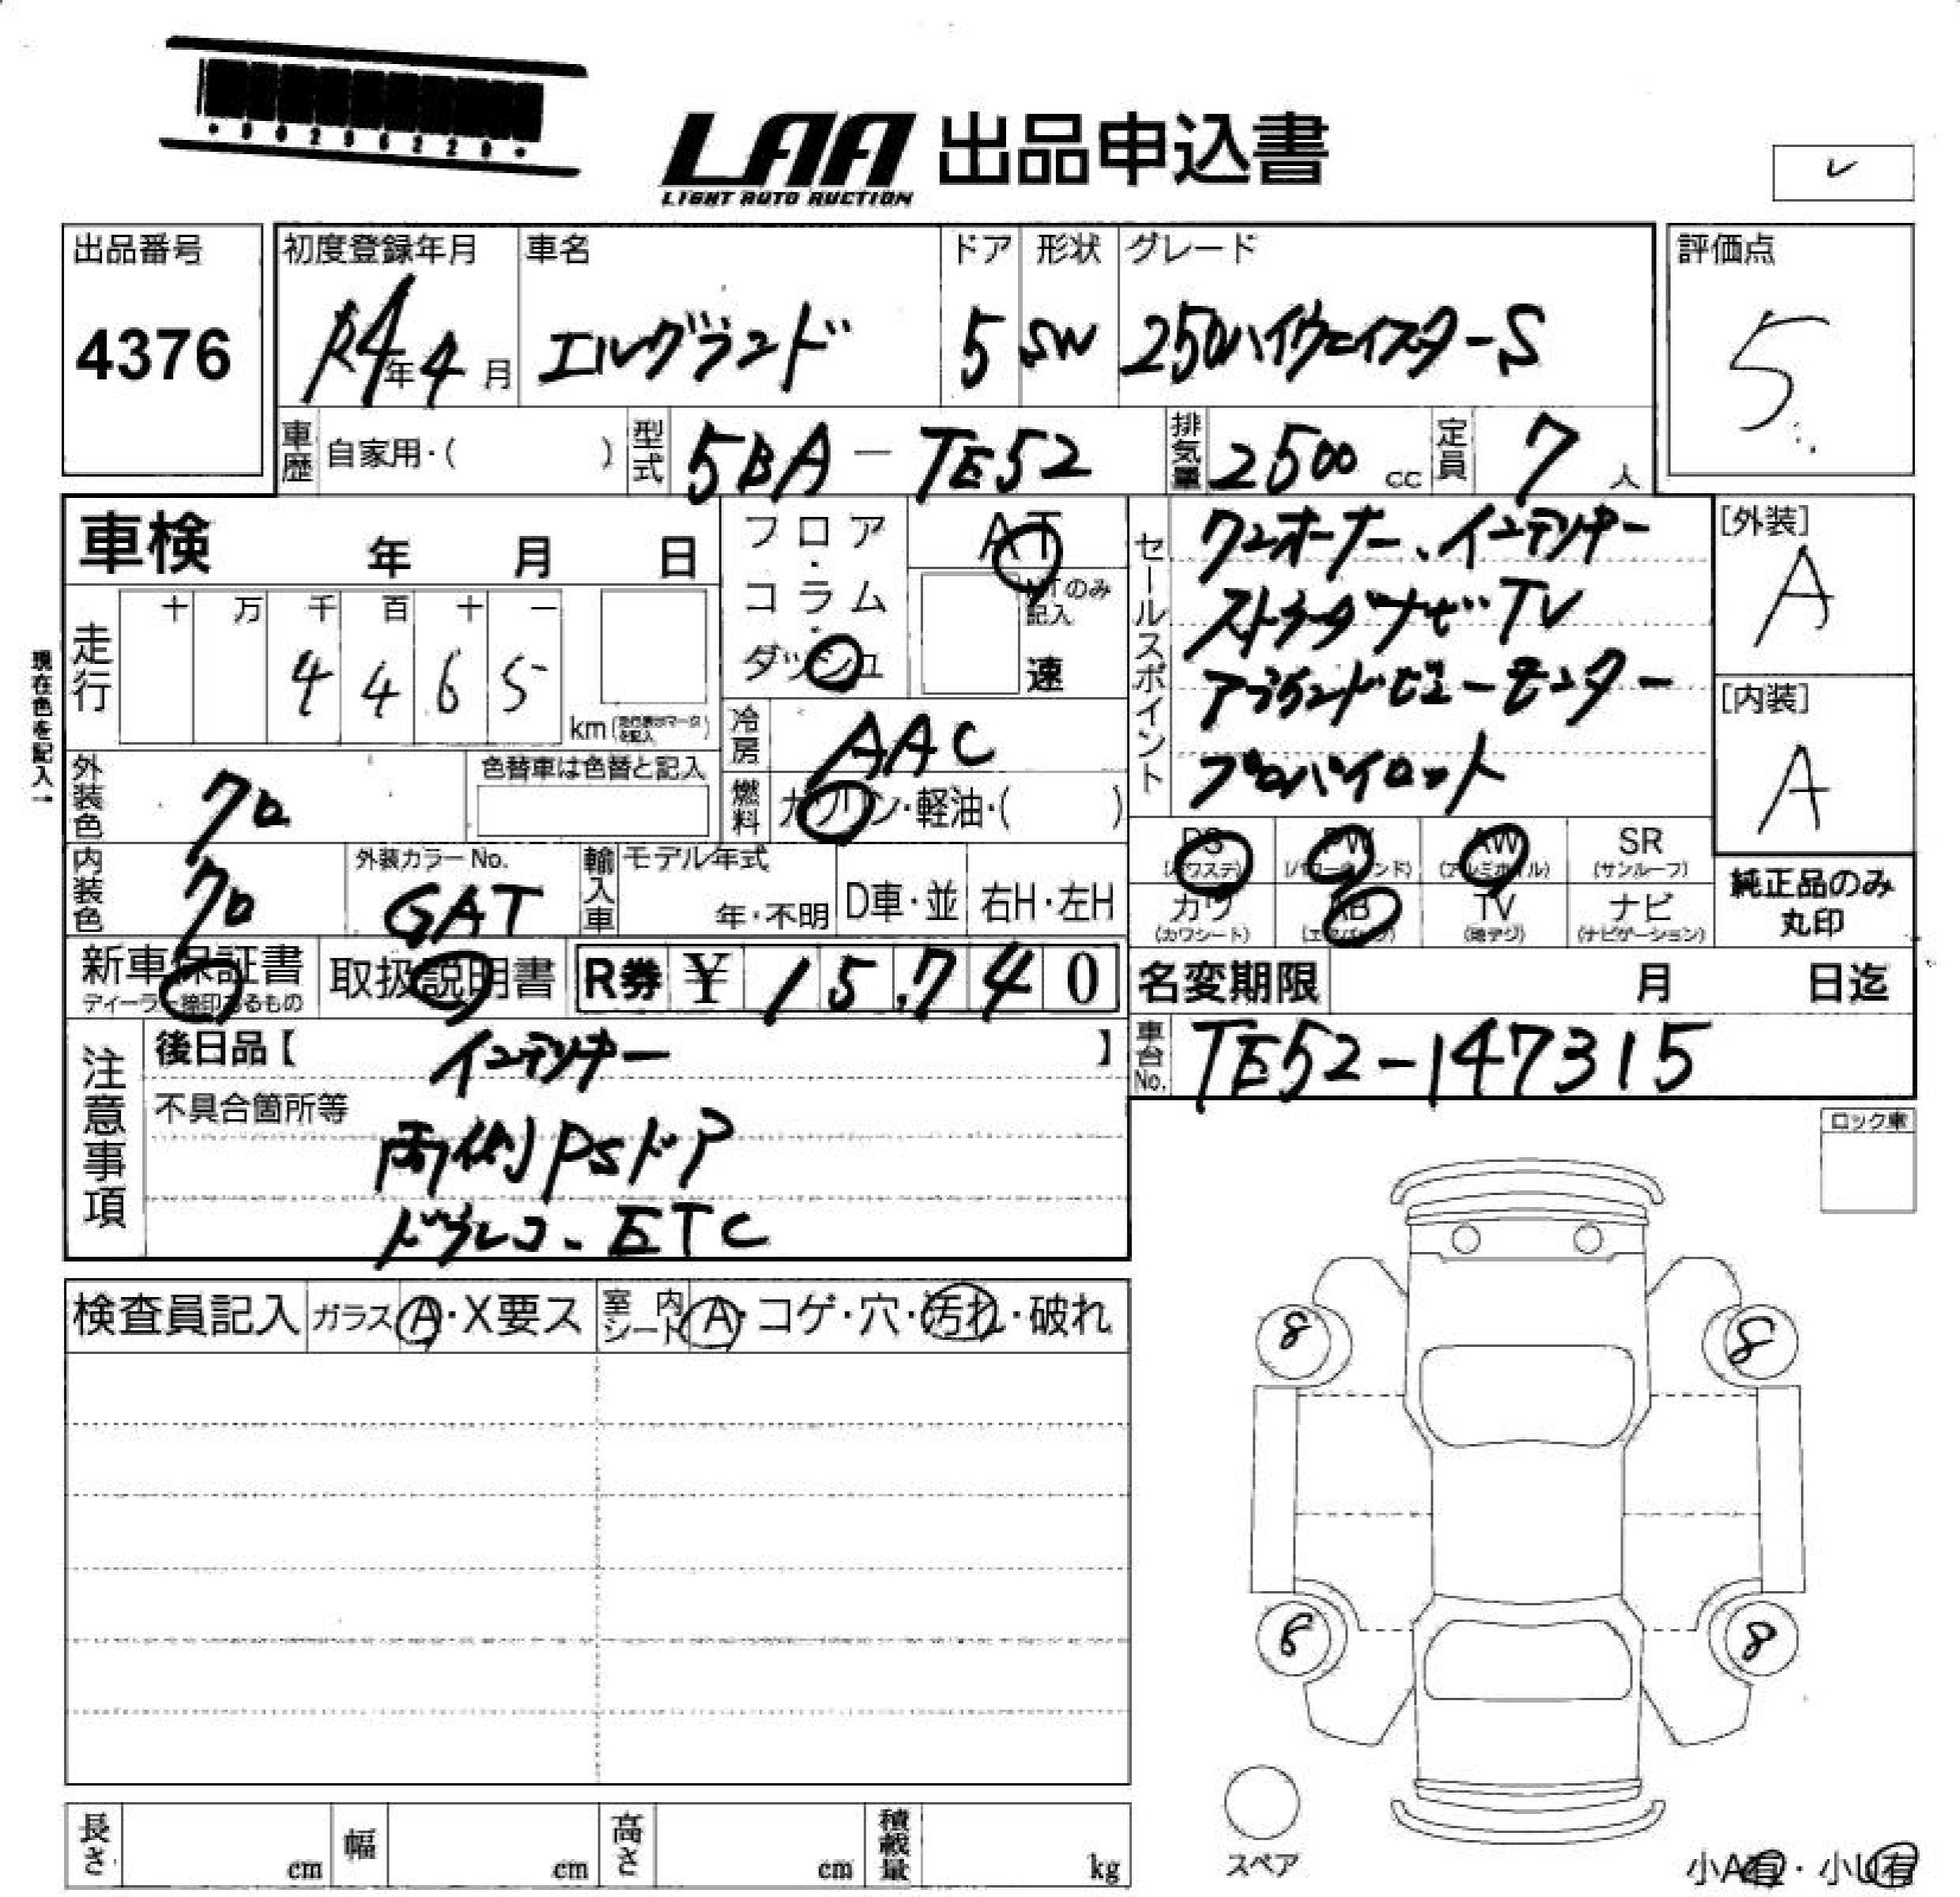 LAA 出品申込書
LIGHT AUTO AUCTION
レ
出品番号 4376
初度登録年月 R4年4月
車名 エルグランド
ドア 5
形状 SW
グレード 250ハイウェイスターS
評価点 5
車歴 自家用・( )
型式 5BA-TE52
排気量 2500 cc
定員 7 人
車検 年 月 日
フロア・コラム・ダッシュ
AT
MTのみ記入 速
走行 十 万 千 百 十 一
4 4 6 5 km
現在色を記入→
冷房 AAC
燃料 ガソリン・軽油・( )
外装色 クロ
色替車は色替と記入
内装色 クロ
外装カラーNo. GAT
輸入車 モデル年式 年・不明 D車・並 右H・左H
セールスポイント
ワンオーナー、インテリキー
ストラーダナビ・TV
アラウンドビューモニター
プロパイロット
[外装] A
[内装] A
PS (パワステ) PW (パワーウィンド) AW (アルミホイル) SR (サンルーフ)
カワ (カワシート) AB (エアバッグ) TV (地デジ) ナビ (ナビゲーション)
純正品のみ丸印
新車保証書 ディーラー検印あるもの
取扱説明書
R券 ¥ 15,740
名変期限 月 日迄
車台No. TE52-147315
注意事項
後日品【 インテリキー 】
不具合箇所等
両側PSドア
ドラレコ、ETC
ロック車
検査員記入 ガラス A・X要ス 室内シート A・コゲ・穴・汚れ・破れ
8 8
8
スペア
長さ cm 幅 cm 高さ cm 積載量 kg
小A有・小U有